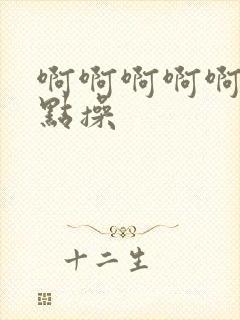 啊啊啊啊啊
點操
十二生